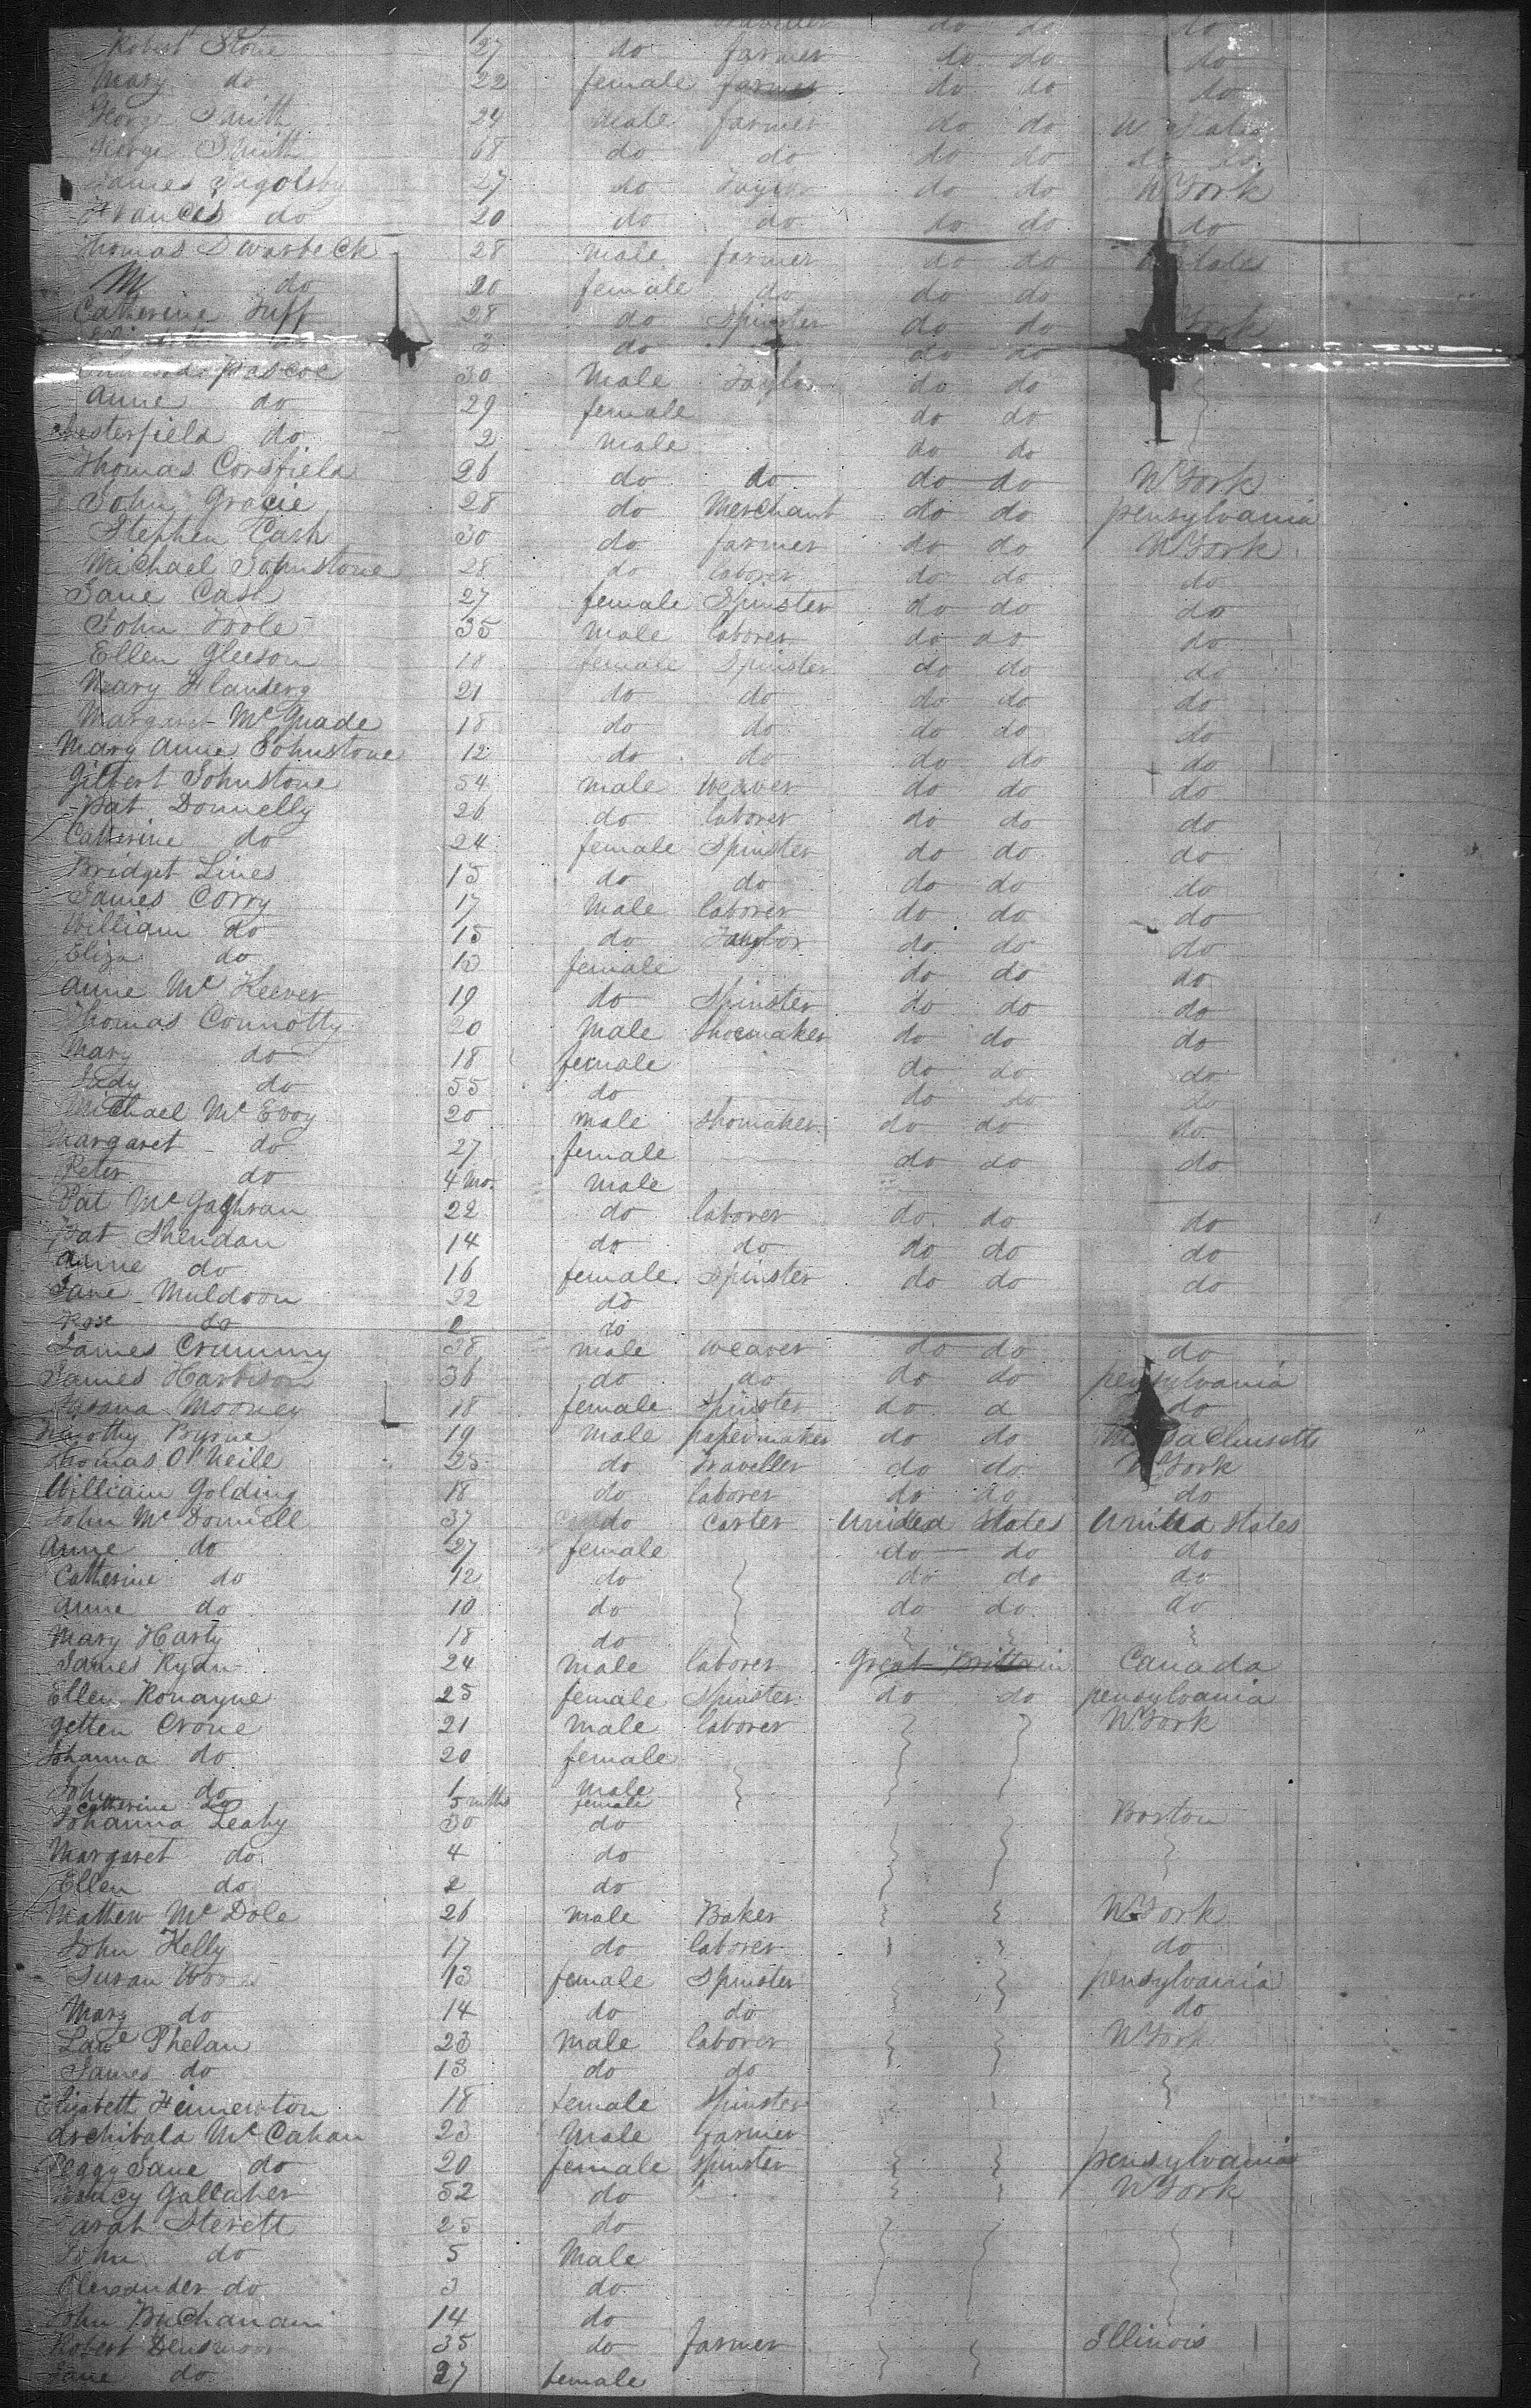 do do do
Robert Stone 27 do farmer do do do
Mary do 22 female farmer do do do
George Smith 24 male farmer do do U States
George Smith 68 do do do do do do
James 27 do Taylor do do NYork
Frances do 20 do do do do do
Thomas Dwarbeck 28 male farmer do do States
M do 20 female do do do
Catherine Tuff 28 do Spinster do do York
3 do do do
Pascoe 30 Male Taylor do do
Anne do 29 female do do
Chesterfield do 2 male do do
Thomas Corsfield 26 do do do do NYork
John Gracie 28 do Merchant do do pensylvania
Stephen Cash 30 do farmer do do NYork
Michael Johnstone 28 do laborer do do do
Jane Cash 27 female Spinster do do do
John Toole 35 Male laborer do do do
Ellen Gleeson 18 female Spinster do do do
Mary Flanders 21 do do do do do
Margaret McQuade 18 do do do do do
Mary Anne Johnstone 12 do do do do do
Gilbert Johnstone 54 male Weaver do do do
Pat Donnelly 26 do laborer do do do
Catherine do 24 female Spinster do do do
Bridget Lines 15 do do do do do
James Corry 17 Male laborer do do do
William do 15 do Taylor do do do
Eliza do 13 female do do do
Anne McKeever 19 do Spinster do do do
Thomas Connotty 20 Male Shoemaker do do do
Mary do 18 female do do do
do 55 do do do do
Michael McEvoy 20 male shomaker do do do
Margaret do 27 female do do do
Peter do 4 mo. male
Pat McGaghran 22 do laborer do do do
Pat Sheridan 14 do do do do do
Anne do 16 female Spinster do do do
Jane Muldoon 22 do
Rose do 2 do
James Crummy 38 male weaver do do do
James Harbison 36 do do do do pensylvania
Susana Mooney 18 female Spinster do d do
Timothy Byrne 19 Male papermaker do do Massachusetts
Thomas O'Neill 25 do Traveller do do NYork
William Golding 18 do laborer do do do
John McDonnell 37 do Carter United States United States
Anne do 27 female do do do
Catherine do 12 do do do do
Anne do 10 do do do do
Mary Harty 18 do
James Ryan 24 Male laborer Great Brittain Canada
Ellen Ronayne 25 female Spinster do do pensylvania
Jetten Crone 21 Male laborer NYork
Johanna do 20 female
John do 1 Male
Catherine do 5 mths female
Johanna Leahy 30 do Boston
Margaret do 4 do
Ellen do 2 do
Mathew McDole 26 male Baker NYork
John Kelly 17 do laborer do
Susan 13 female Spinster pensylvania
Mary do 14 do do do
Lawe Phelan 23 Male laborer NYork
James do 13 do do
Elizabett 18 female Spinster
Archibald McCahan 23 Male farmer
Peggy Jane do 20 female Spinster pensylvania
Nancy Gallaher 52 do NYork
Sarah Sterett 25 do
John do 5 Male
Alexander do 3 do
John Buchanan 14 do
Robert Densmoor 35 do farmer Illinois
Jane do 27 female